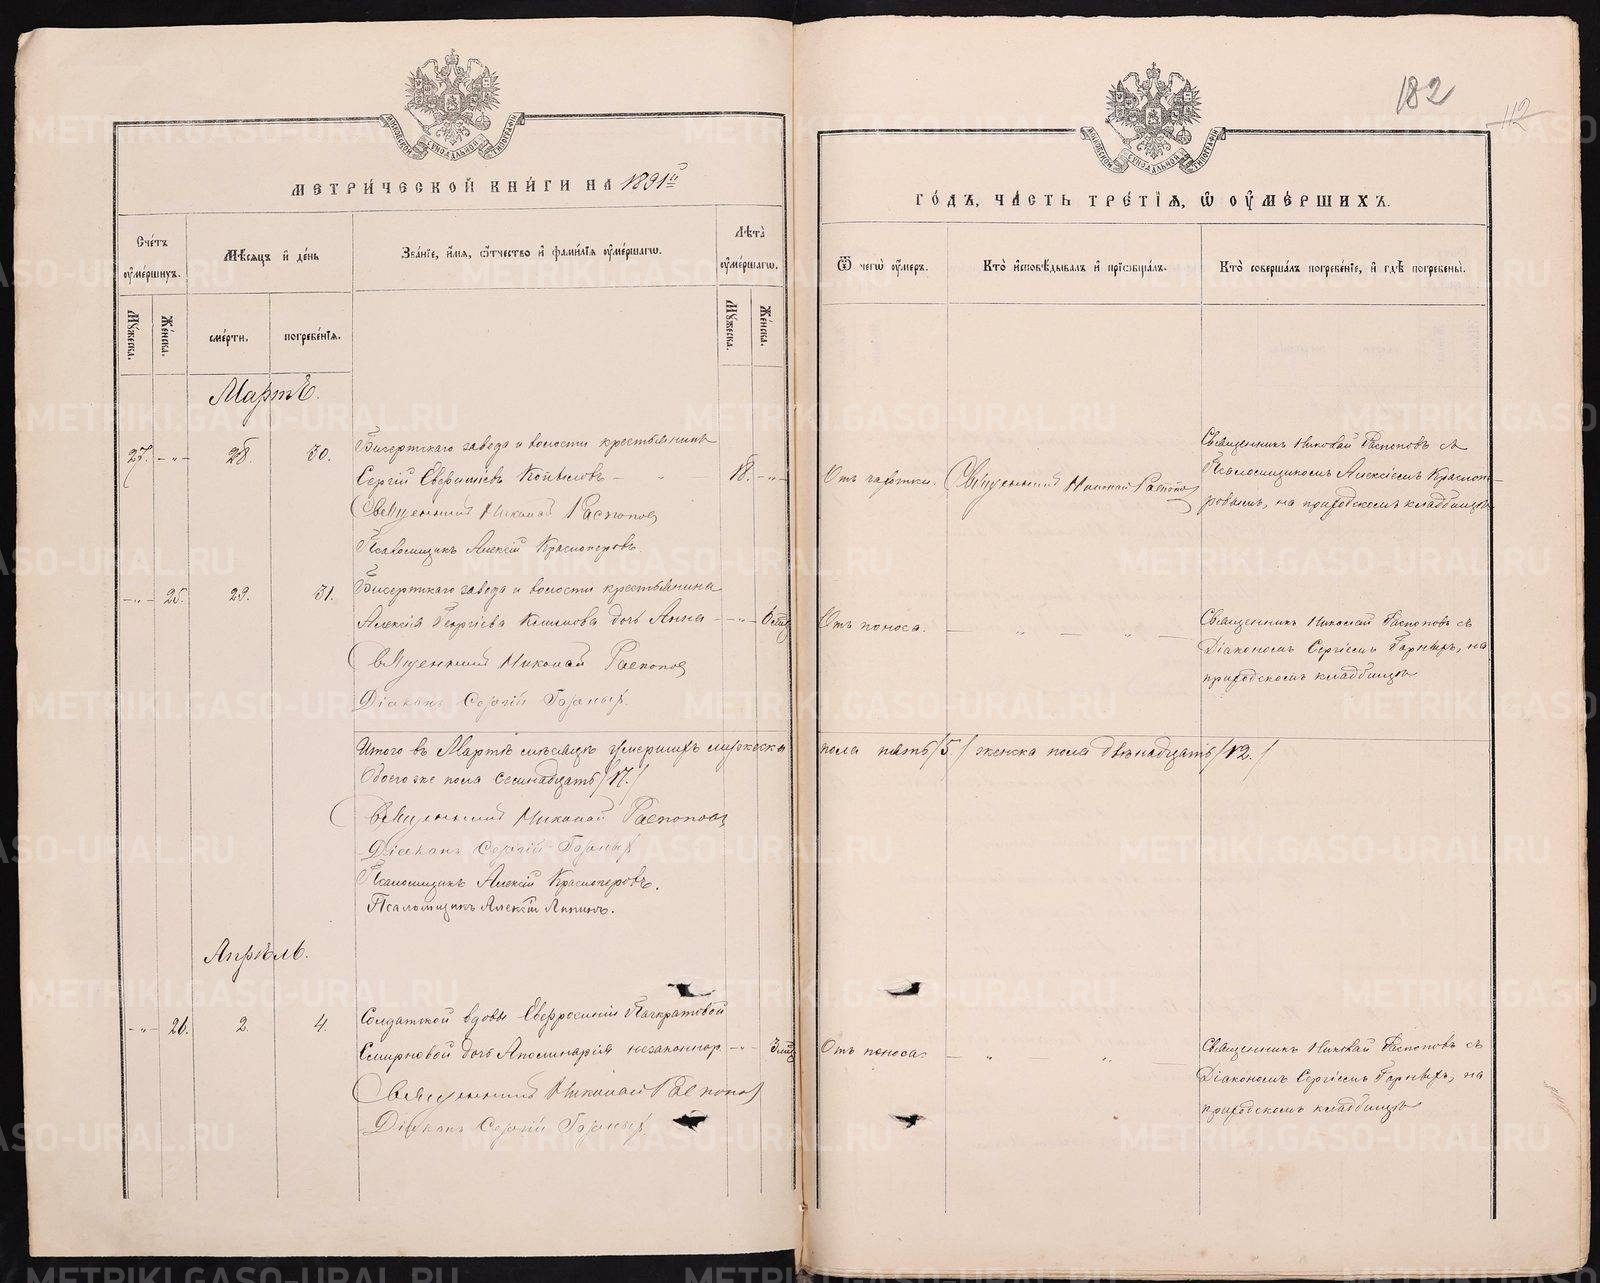 182
112
МЕТРИ́ЧЕСКОЙ КНИ́ГИ НА 1891й
ГО́ДЪ, ЧА́СТЬ ТРЕ́ТІѦ, Ѿ ОУМЕ́РШИХЪ.
Сче́тъ оумершихъ.
Мѣсяцъ и де́нь
Зва́нїе, и҆мя, ѻ҆тчество и҆ фами́лїя оумершагѡ.
Лѣта̀ оумершагѡ.
Ѿ чегѡ̀ оумеръ.
Кто̀ и҆сповѣдывалъ и҆ прїѡбщалъ.
Кто̀ соверша́лъ погребе́нїе, и҆ гдѣ̀ погребены̀.
Мужеска.
Женска.
сме́рти.
погребе́нїѧ.
Мужеска.
Женска.
Мартъ.
27. - „ - 28. 30. Бисертскаго завода и волости крестьянинъ
Сергій Копыловъ - „ 18. - „ -
Священникъ Николай Распопов
Псаломщикъ Алексій Красноперовъ.
Отъ чахотки. Священникъ Николай Распопов
Священникъ Николай Распоповъ съ
Псаломщикомъ Алексіемъ Красноп-
ровымъ, на приходскомъ кладбищѣ
- „ - 25. 29. 31. Бисертскаго завода и волости крестьянина
Алексія Георгіева дочь Анна - „ - 6 мѣс
Священникъ Николай Распопов
Діаконъ Сергій Горныхъ.
Отъ поноса. — „ — „ —
Священникъ Николай Распоповъ съ
Діакономъ Сергіемъ Горныхъ, на
приходскомъ кладбищѣ
Итого въ Мартѣ мѣсяцѣ умершихъ мужеска пола пять /5/ женска пола двѣнадцать /12./
Обоего же пола семнадцать /17./
Священникъ Николай Распопов
Діаконъ Сергій Горныхъ
Псаломщикъ Алексій Красноперовъ.
Псаломщикъ Алексій Липинъ.
Апрѣль.
- „ - 26. 2. 4. Солдатской вдовы Евфросиніи Панкратовой
Смирновой дочь Аполинарія незаконнор. - „ - 3 мѣс
Священникъ Николай Распопов
Діаконъ Сергій Горныхъ
Отъ поноса. — „ „ —
Священникъ Николай Распоповъ съ
Діакономъ Сергіемъ Горныхъ, на
приходскомъ кладбищѣ
METRIKI.GASO-URAL.RU